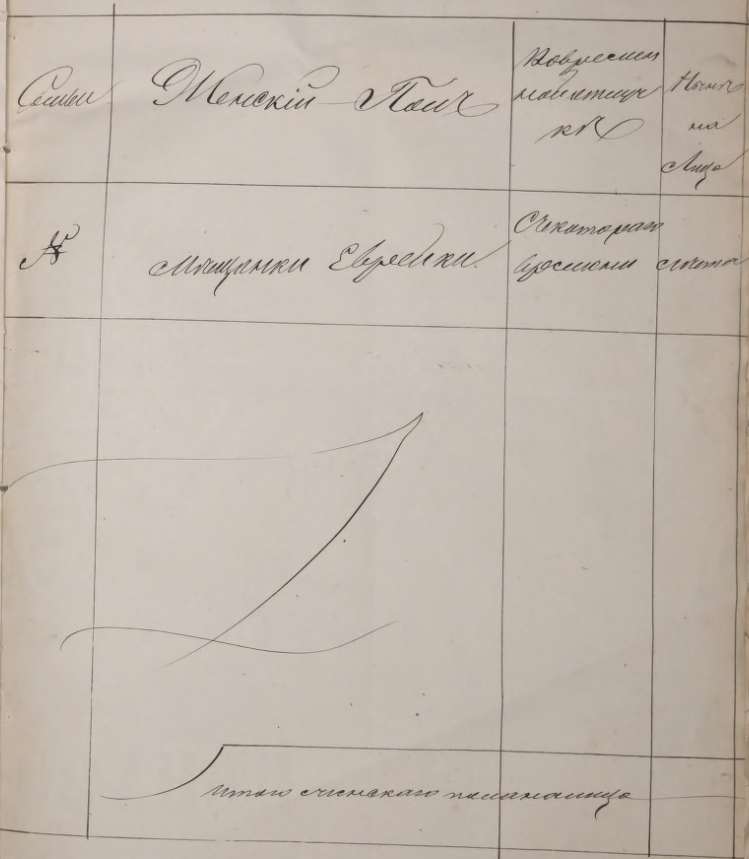 Семьи
Женскій Полъ
Вовремен
ной отлуч
кѣ
Нынѣ
на
Лицо
№
Мѣщанки Еврейки.
Съкотораго
времени
лѣта
Итого женскаго поланалицо